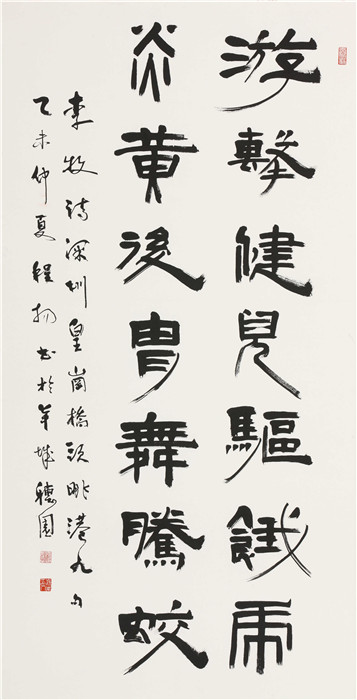 游擊健兒驅餓虎
炎黄後胄舞騰蛟
李牧詩深圳皇崗橋頭眺港九句
乙未仲夏程揚書於羊城穗園